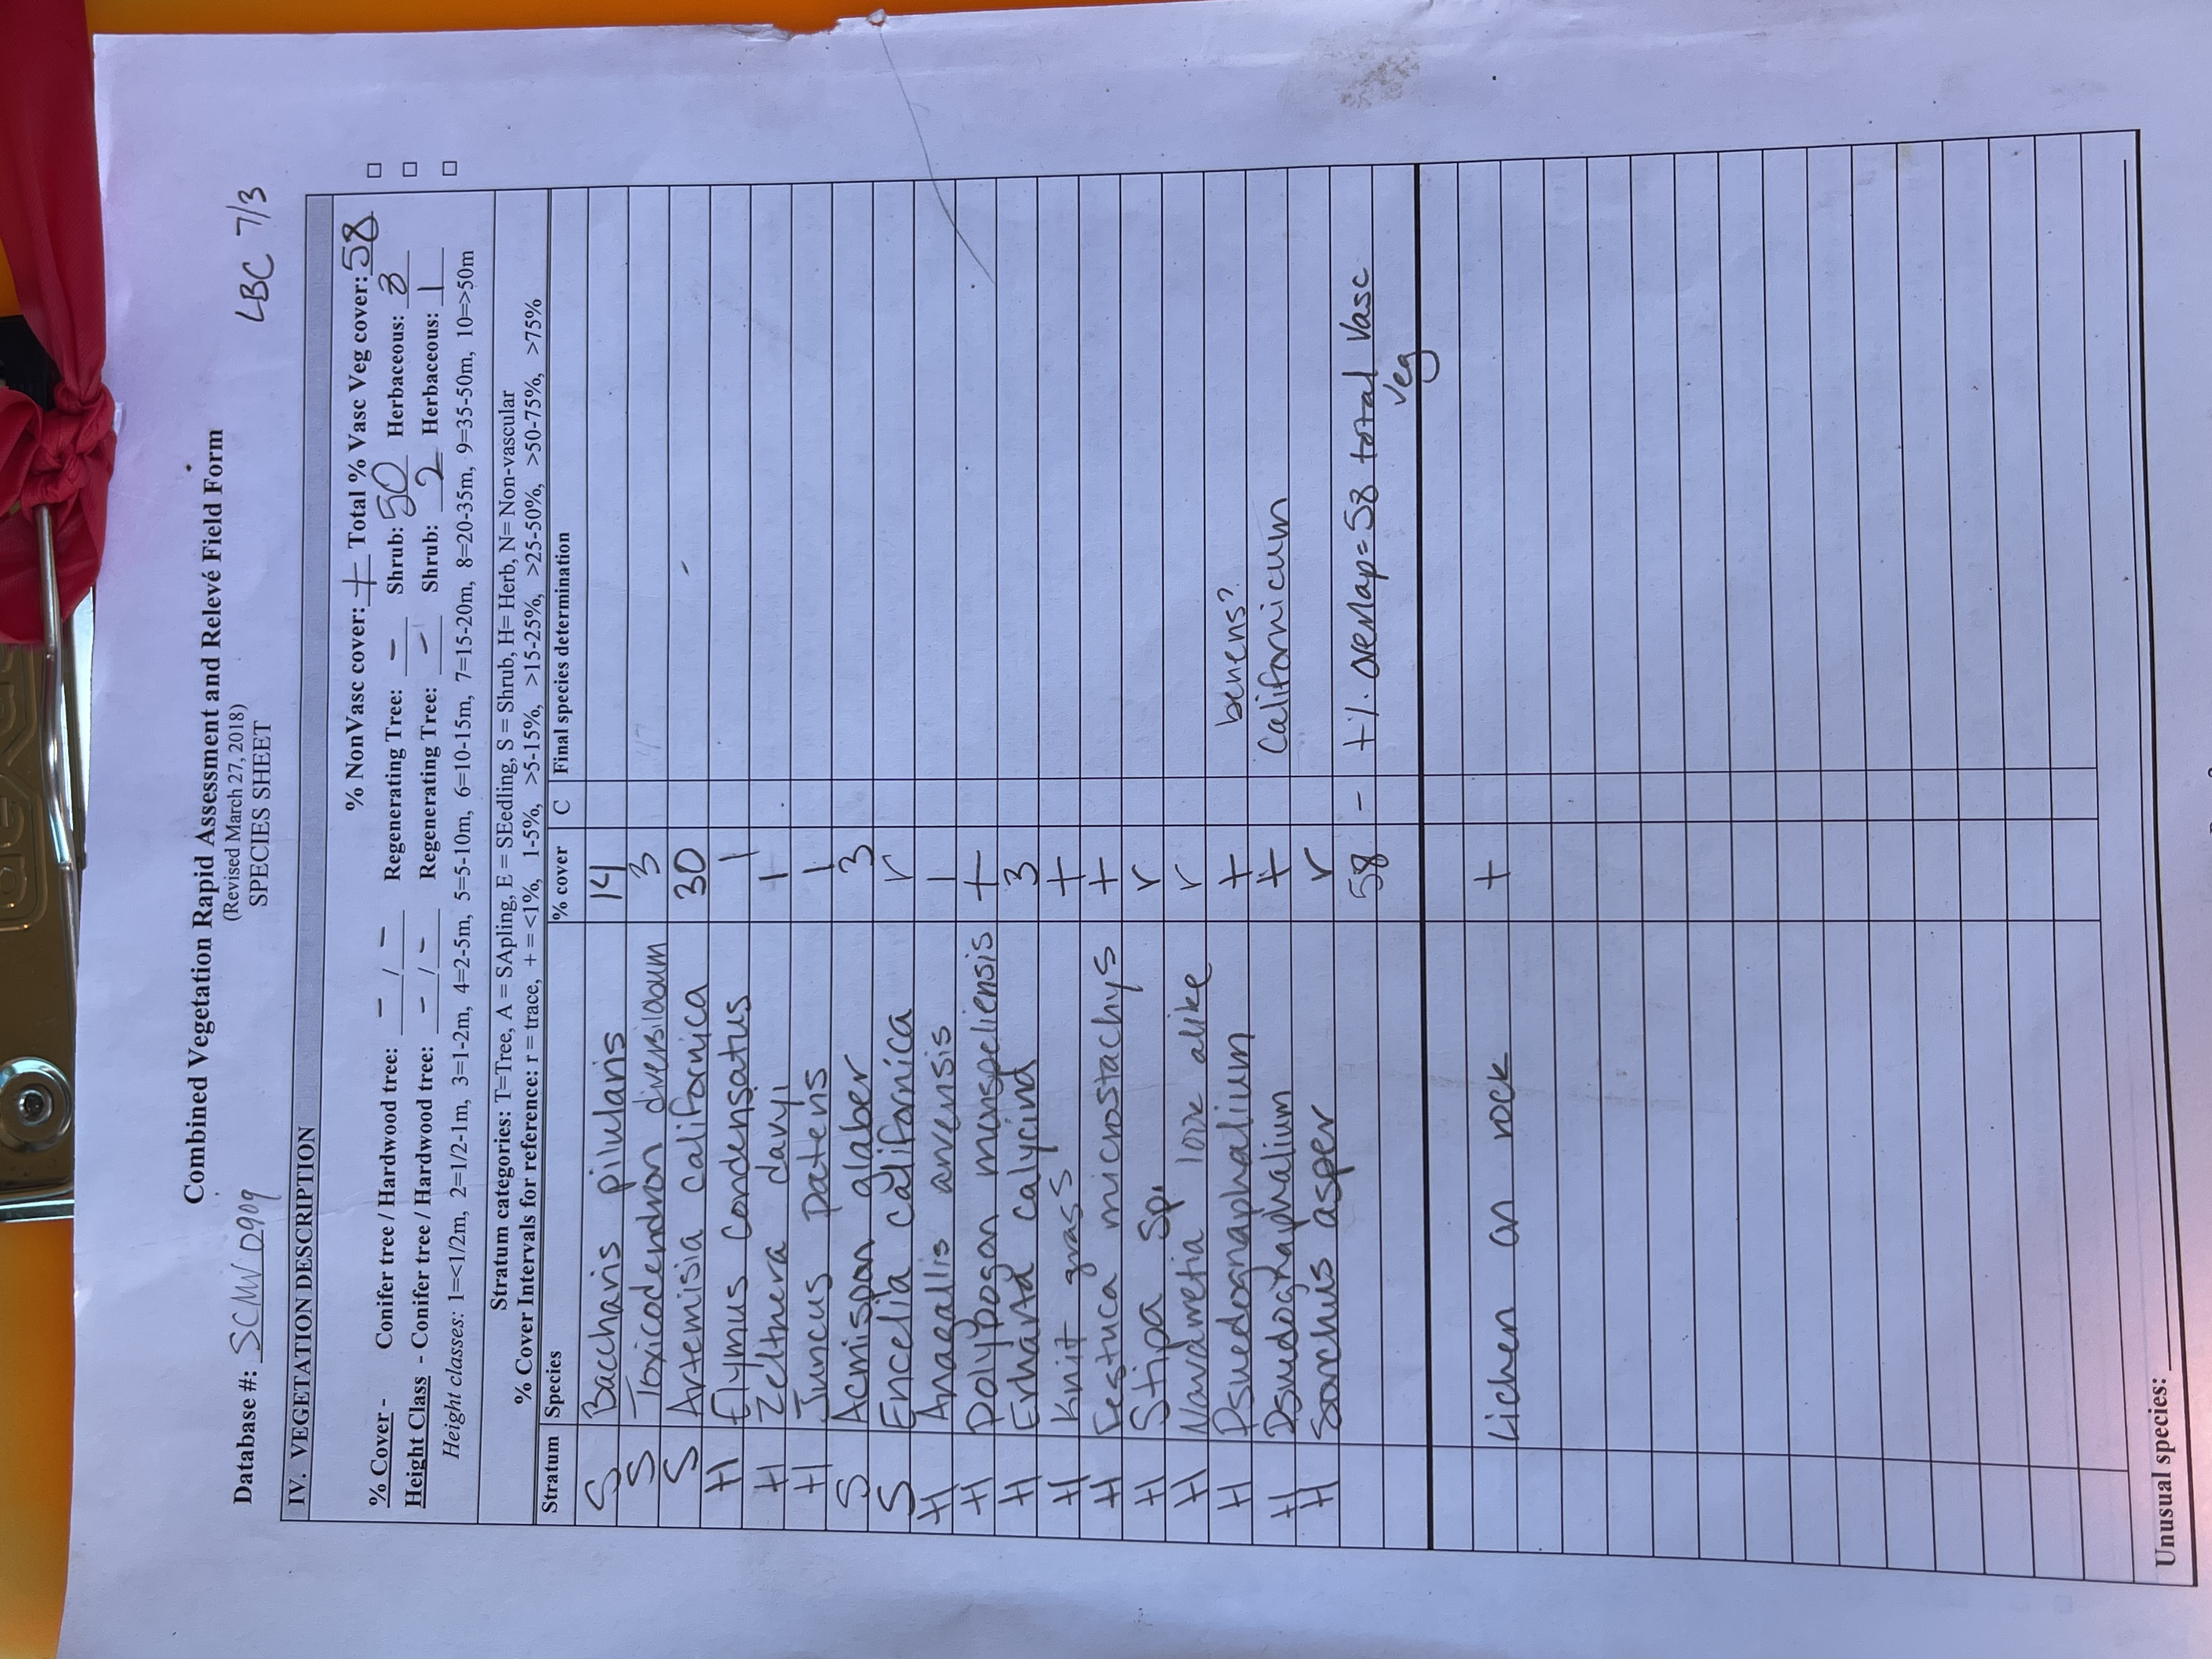 Combined Vegetation Rapid Assessment and Relevé Field Form
(Revised March 27, 2018)
SPECIES SHEET
Database #: SCMW0909
LBC 7/3
IV. VEGETATION DESCRIPTION
% NonVasc cover: + Total % Vasc Veg cover: 58
% Cover - Conifer tree / Hardwood tree: - / - Regenerating Tree: - Shrub: 50 Herbaceous: 8
Height Class - Conifer tree / Hardwood tree: - / - Regenerating Tree: - Shrub: 2 Herbaceous: 1
Height classes: 1=<1/2m, 2=1/2-1m, 3=1-2m, 4=2-5m, 5=5-10m, 6=10-15m, 7=15-20m, 8=20-35m, 9=35-50m, 10=>50m
Stratum categories: T=Tree, A = SApling, E = SEedling, S = Shrub, H= Herb, N= Non-vascular
% Cover Intervals for reference: r = trace, + = <1%, 1-5%, >5-15%, >15-25%, >25-50%, >50-75%, >75%
Stratum Species % cover C Final species determination
S Baccharis pilularis 14
S Toxicodendron diversilobum 3
S Artemisia californica 30
H Elymus condensatus 1
H Zeltnera davyi 1
H Juncus patens 1
S Acmispon glaber 3
S Encelia californica r
H Anagallis arvensis 1
H Polypogon monspeliensis +
H Erharta calycina 3
H Knit grass +
H Festuca microstachys +
H Stipa sp. r
H Navarretia look alike r
H Psuedognaphalium + benens?
H Psuedognaphalium + Californicum
H Sonchus asper r
58 - +% overlap = 58 total Vasc
veg
Lichen on rock +
Unusual species: